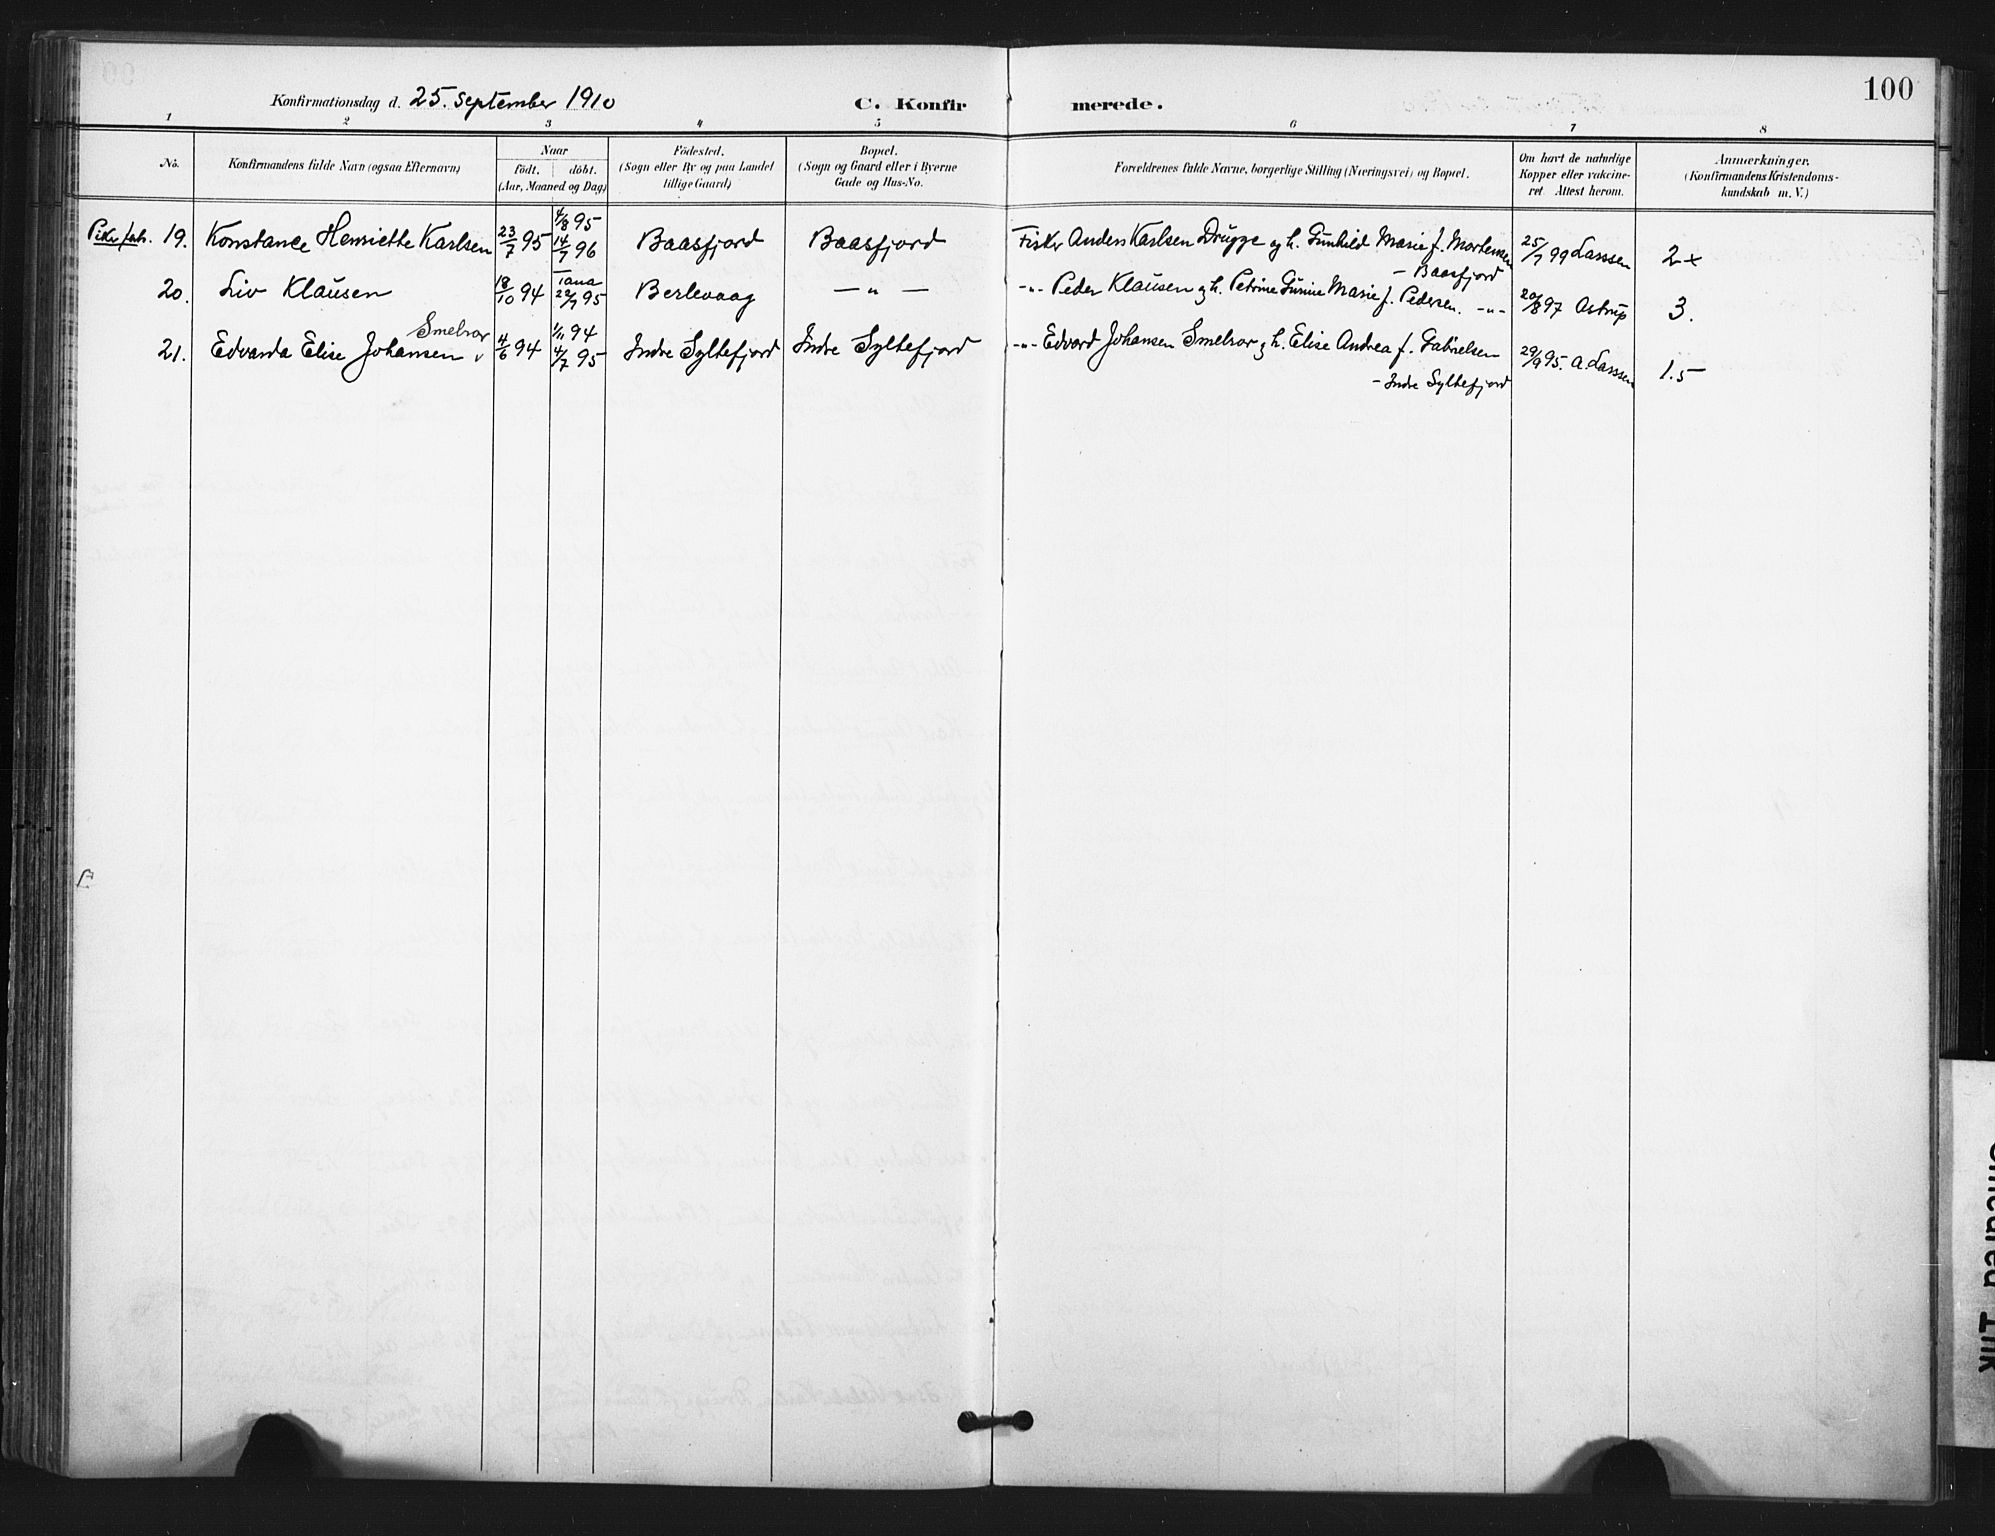 100
Konfirmationsdag d. 25. September 1910 C. Konfirmerede.
1 2 3 4 5 6 7 8
No. Konfirmandens fulde Navn (ogsaa Efternavn) Naar født. døbt. (Aar, Maaned og Dag) Fødested. (Sogn eller By og paa Landet tillige Gaard) Bopæl. (Sogn og Gaard eller i Byerne Gade og Hus-No. Forældrenes fulde Navne, borgerlige Stilling (Næringsvei) og Bopæl. Om havt de naturlige Kopper eller vakcineret Attest herom. Anmærkninger. (Konfirmandens Kristendomskundskab m. V.)
19. Konstance Henriette Karlsen 23/7 95 4/8 95 14/7 96 Baasfjord Baasfjord Fisker Anders Karlsen Drügge og h. Gunhild Marie f. Mortensen - Baasfjord 25/7 99 Larssen 2+
20. Liv Klaüsen 18/10 94 Tana 22/7 95 Berlevaag — " — -"- Peder Klaüsen og h. Petrine Gurine Marie f. Pedersen. -"- 20/8 97 Astrup 3.
21. Edvarda Elise Johansen Smelror 4/6 94 1/11 94 4/7 95 Indre Syltefjord Indre Syltefjord -"- Edvard Johansen Smelror og h. Elise Andrea f. Gabrielsen - Indre Syltefjord 29/9 95. A. Larssen 1.5